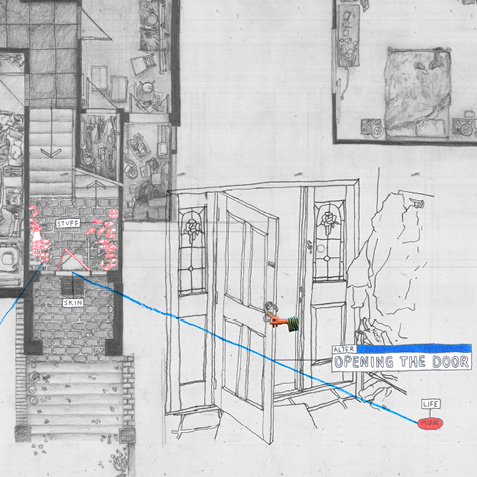 STUFF
SKIN
ALTER
OPENING THE DOOR
LIFE